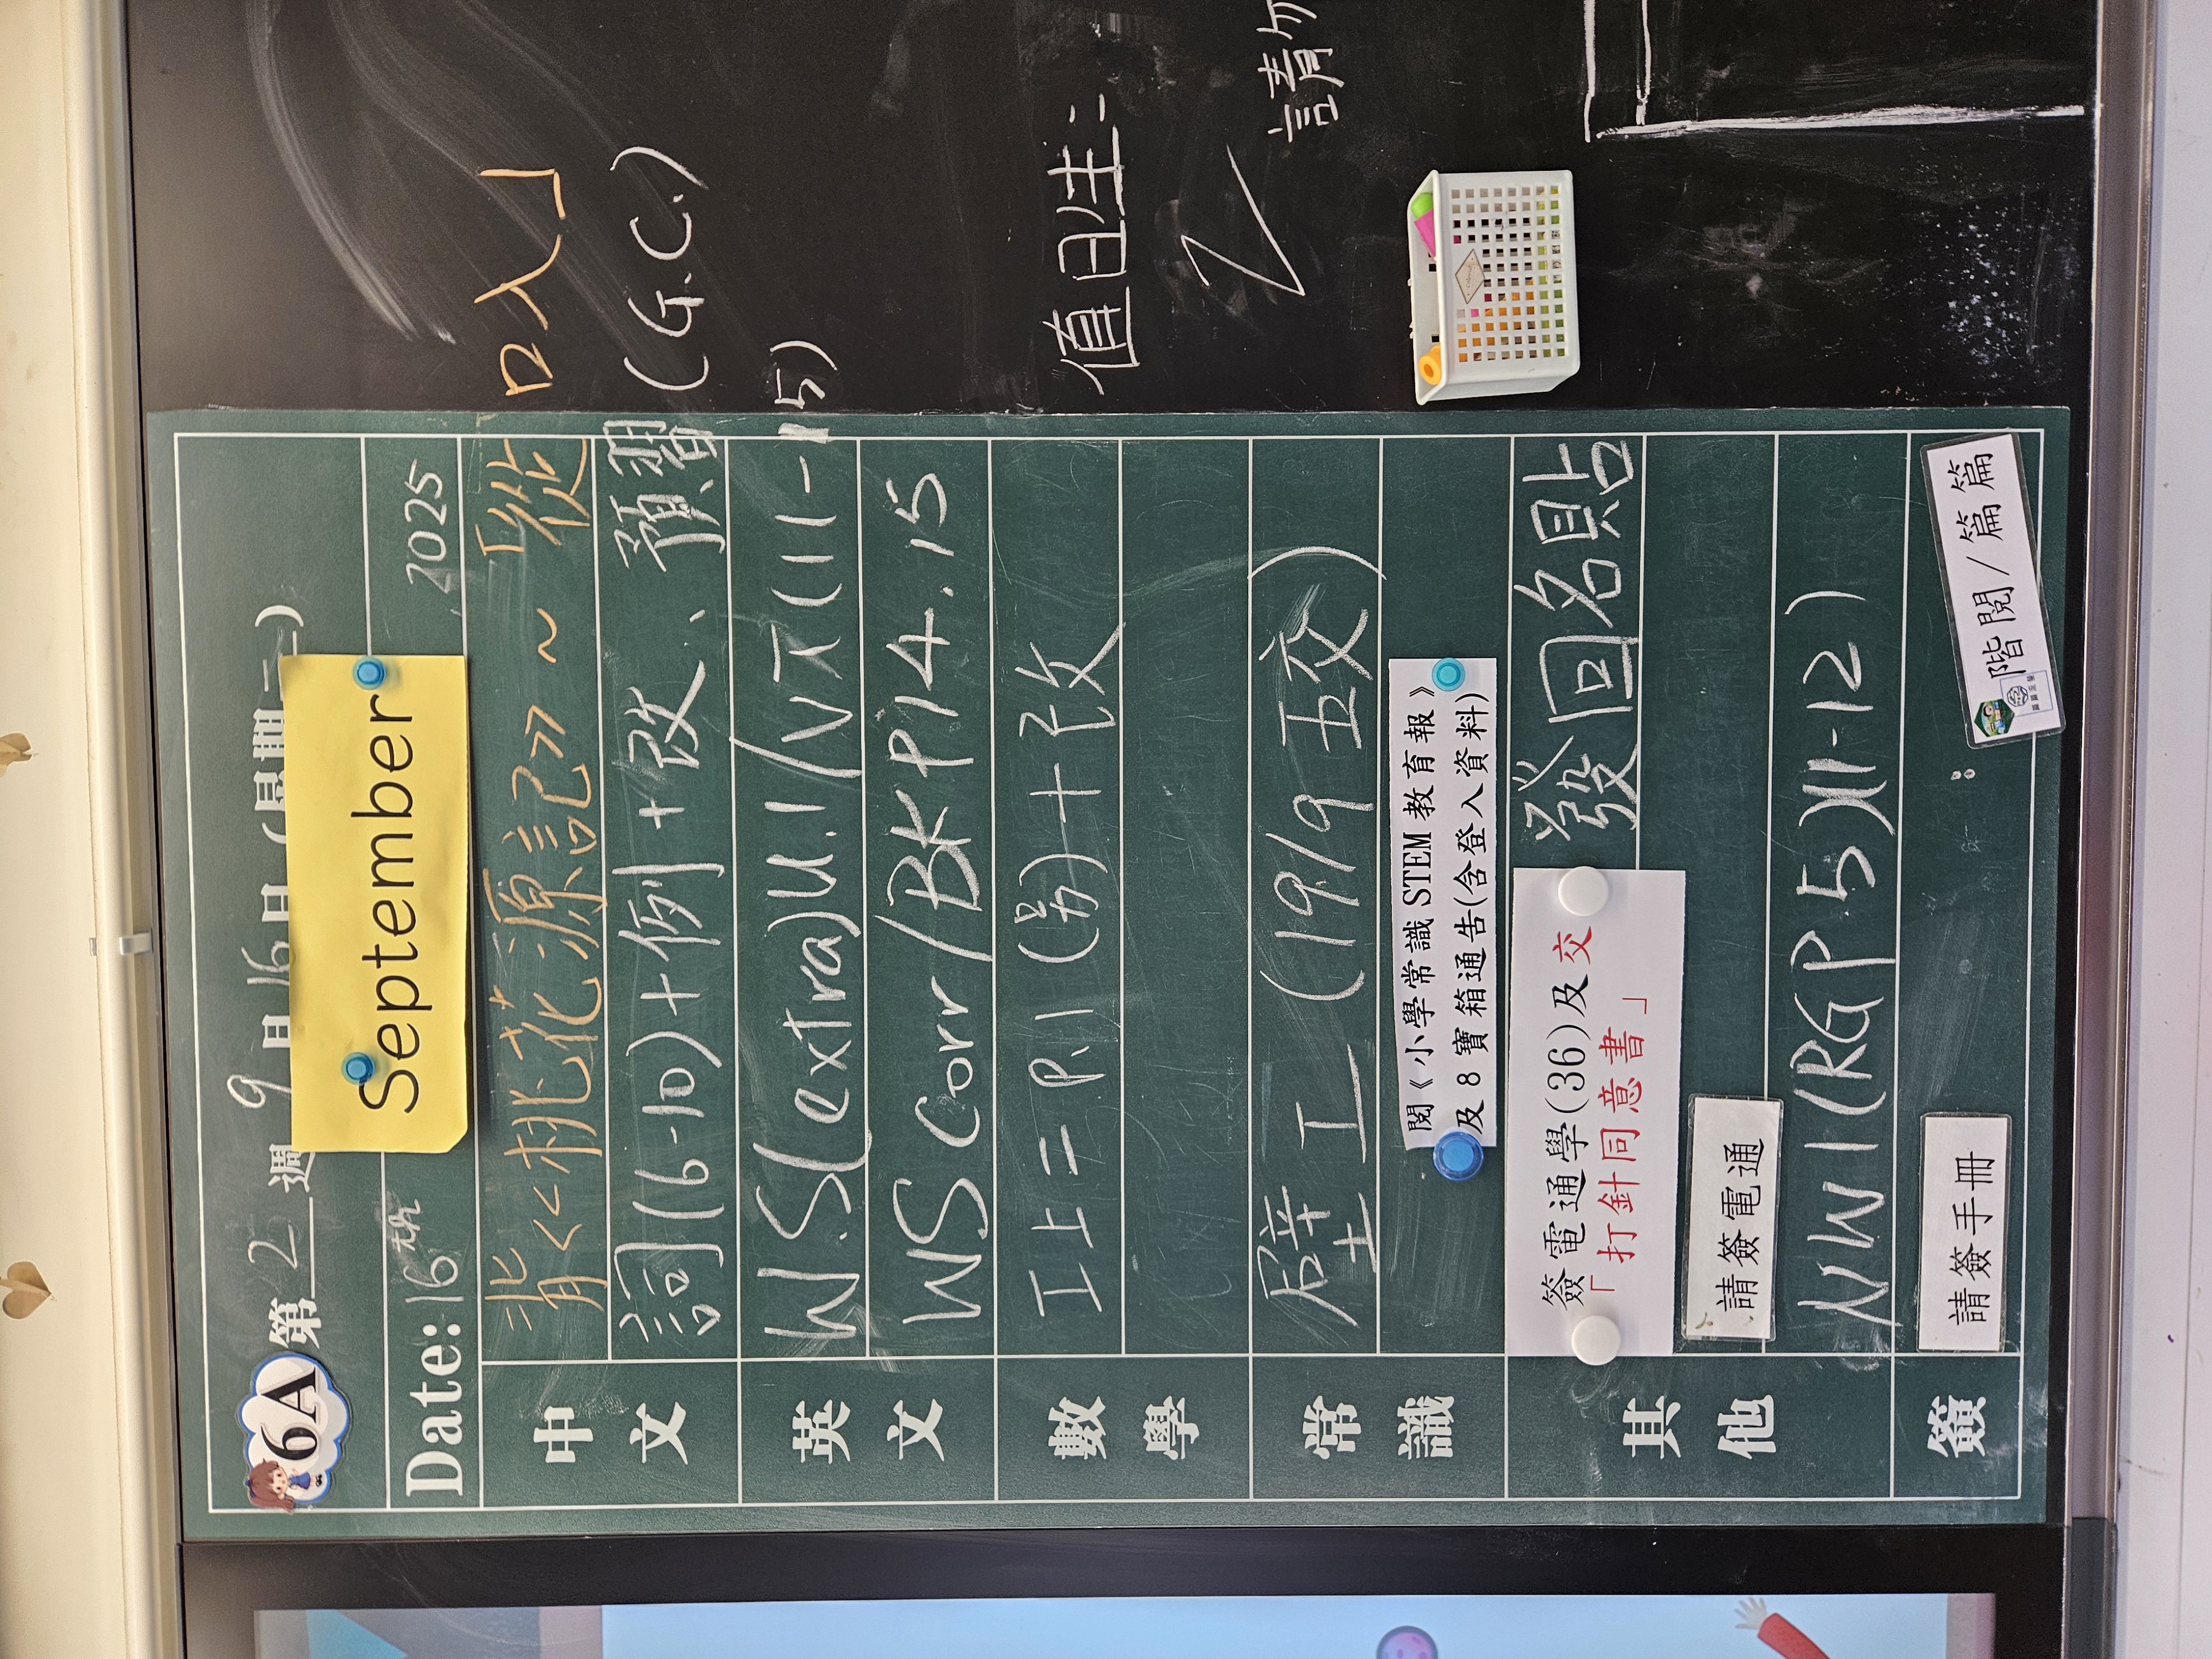 6A 第 2 週 9 月 16 日 (星期二)
September
Date: 16th 2025
中文
背<<桃花源記>> ~ 「從口入」
詞(6-10)+例+改、預習 (G.C.)
英文
W.S(extra)U.1 / V不(11-15)
WS Corr / BK P14.15
數學
工上=P.1 (另)+改
常識
壁工 (19/9 五交)
閱《小學常識 STEM 教育報》
及 8 寶箱通告(含登入資料)
其他
簽電通學(36)及交
「打針同意書」
發回名貼
請簽電通
NW1(RGP.5)(11-12)
簽
請簽手冊
:
階閱/篇篇
值日生:
2
請勿